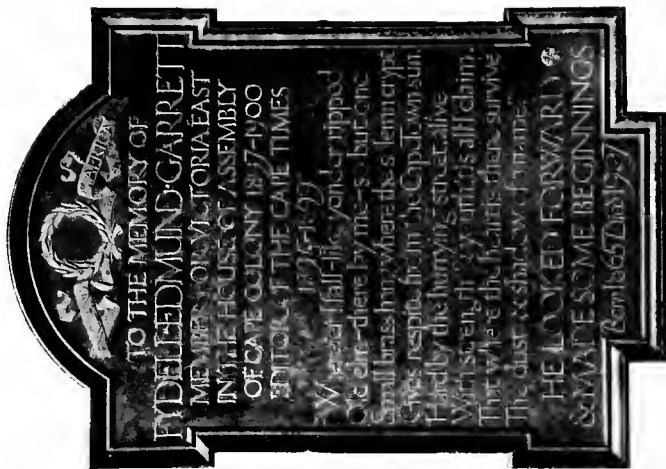 AFRICA
TO THE MEMORY OF
FYDELL·EDMUND·GARRETT
MEMBER FOR VICTORIA EAST
IN THE HOUSE OF ASSEMBLY
OF CAPE COLONY 1897-1900
EDITOR OF THE CAPE TIMES
1895-1899
yonder ripped
there by me—is but one
Small brass hid where the silent crypt
Gives respite from the Capetown sun.
Hard by the hurrying street, alive
With strength & youth, 'tis all I claim,
That where the hearts of friends survive
The dust & shadow of a name.
HE LOOKED FORWARD
& MADE SOME BEGINNINGS
Born 1865 Died 1907